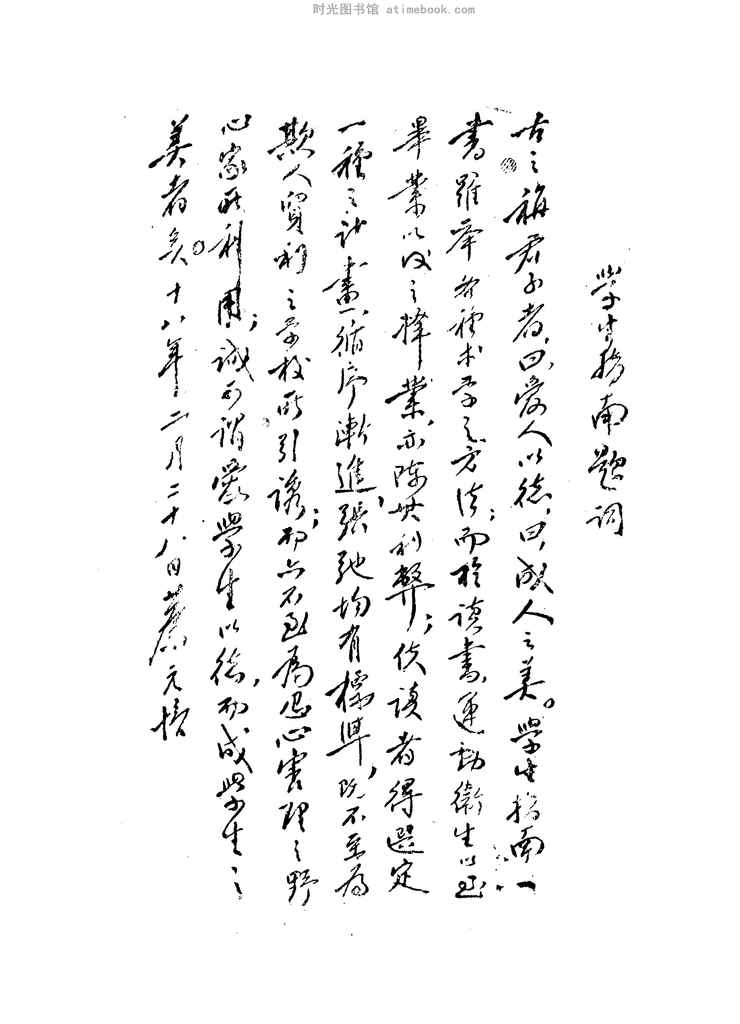 时光图书馆 atimebook.com
學生指南題词
古之稱君子者,曰,愛人以德,曰,成人之美。學生指南一
書羅舉各種求學之方法;而於讀書,運動衛生以至
畢業以後之擇業,亦陳其利弊;使讀者得選定
一種之計畫,循序漸進,張弛均有標準,既不至為
欺人貿利之学校所引誘;而亦不至為忍心害理之野
心家所利用;誠可謂愛學生以德,而成學生之
美者矣。十八年二月二十八日蔡元培